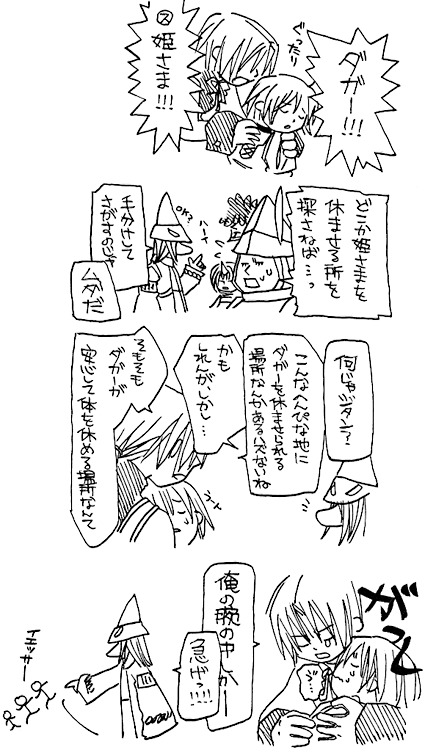 ダガー!!!
ぐったり
㋜
姫さま!!!
どこか姫さまを
休ませる所を
探さねば…っ
ハーイ
OK?
手分けして
さがすのじゃ
ムダだ
何じゃジタン?
こんなへんぴな地に
ダガーを休ませられる
場所なんかあるハズないね
かも
しれんがしかし…
そもそも
ダガーが
安心して体を休める場所なんて
ガクん
俺の腕の中しかー
急げっ!!!
イエッサー